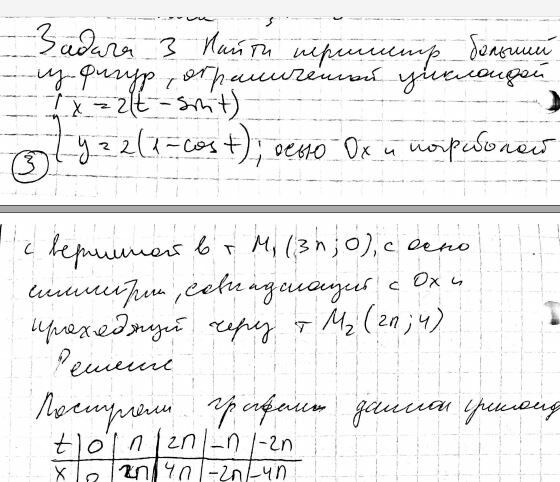 Задача 3 Найти периметр большей
из фигур, ограниченной циклоидой
{ x = 2(t - sin t)
③ { y = 2(1 - cos t); осью Ox и параболой
с вершиной в т M₁ (3π; 0), с осью
симметрии, совпадающей с Ox и
проходящей через т M₂ (2π; 4)
Решение
Построим график данной циклоид
t | 0 | π | 2π | -π | -2π
x | 0 | 2π | 4π | -2π | -4π